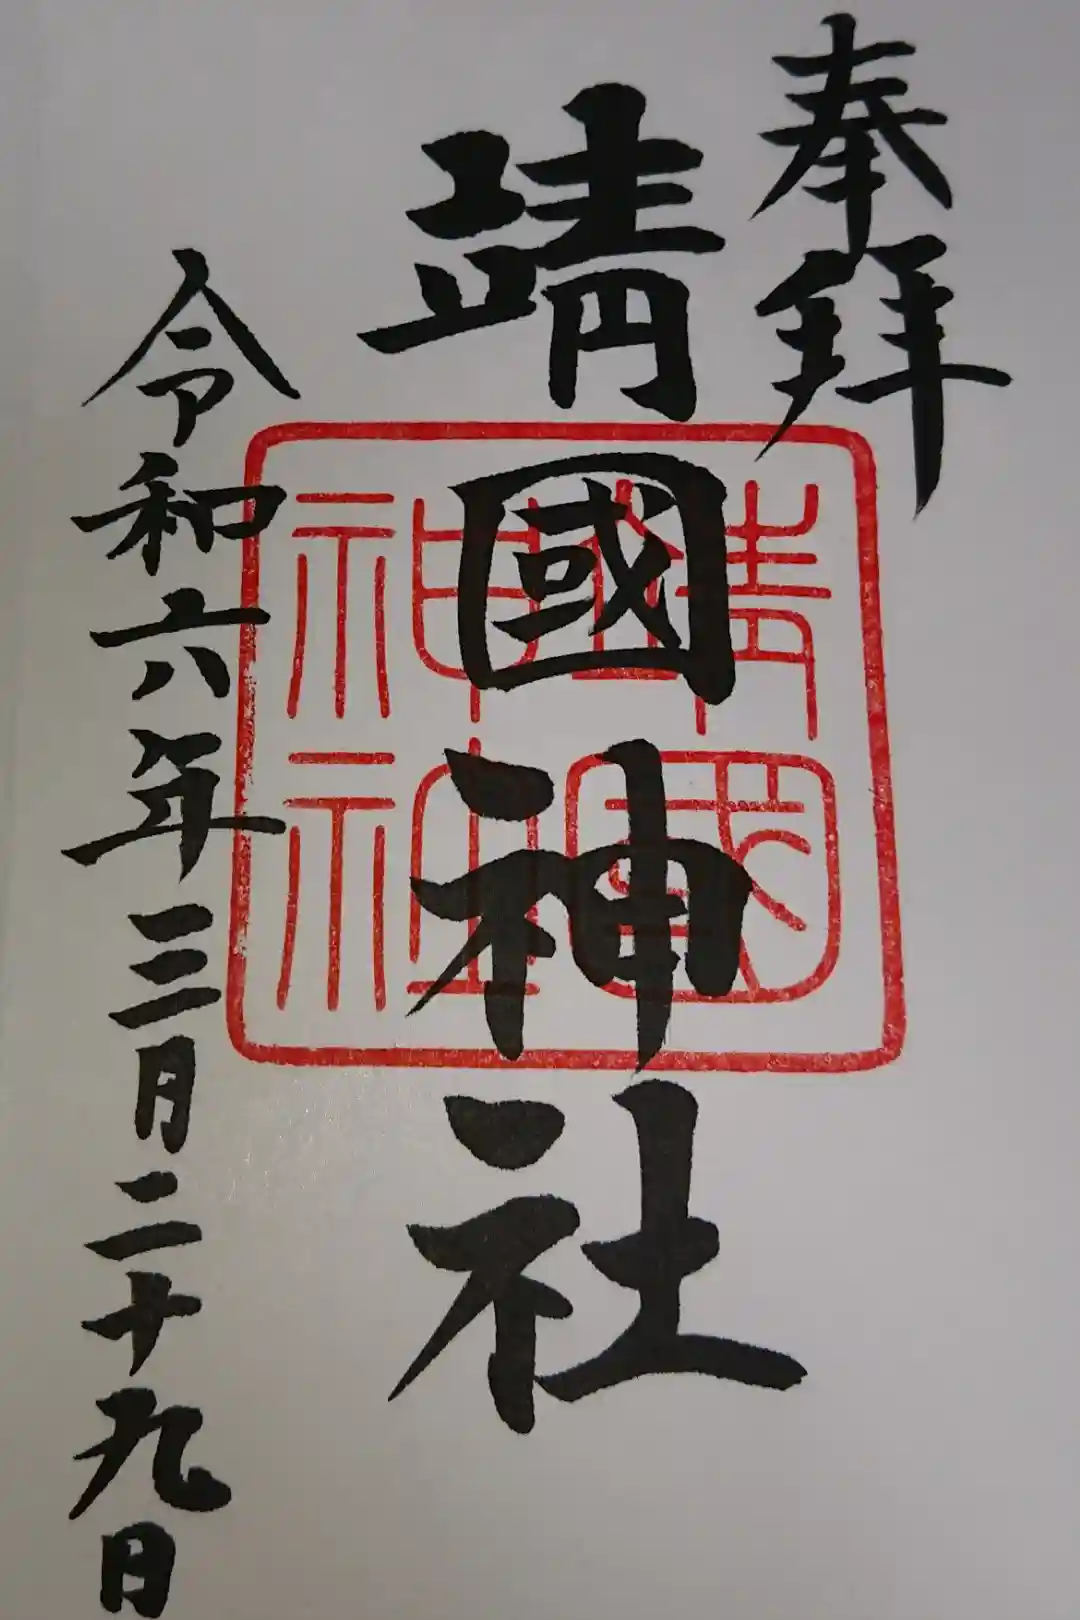 奉拜
靖國神社
靖國
神社
令和六年三月二十九日